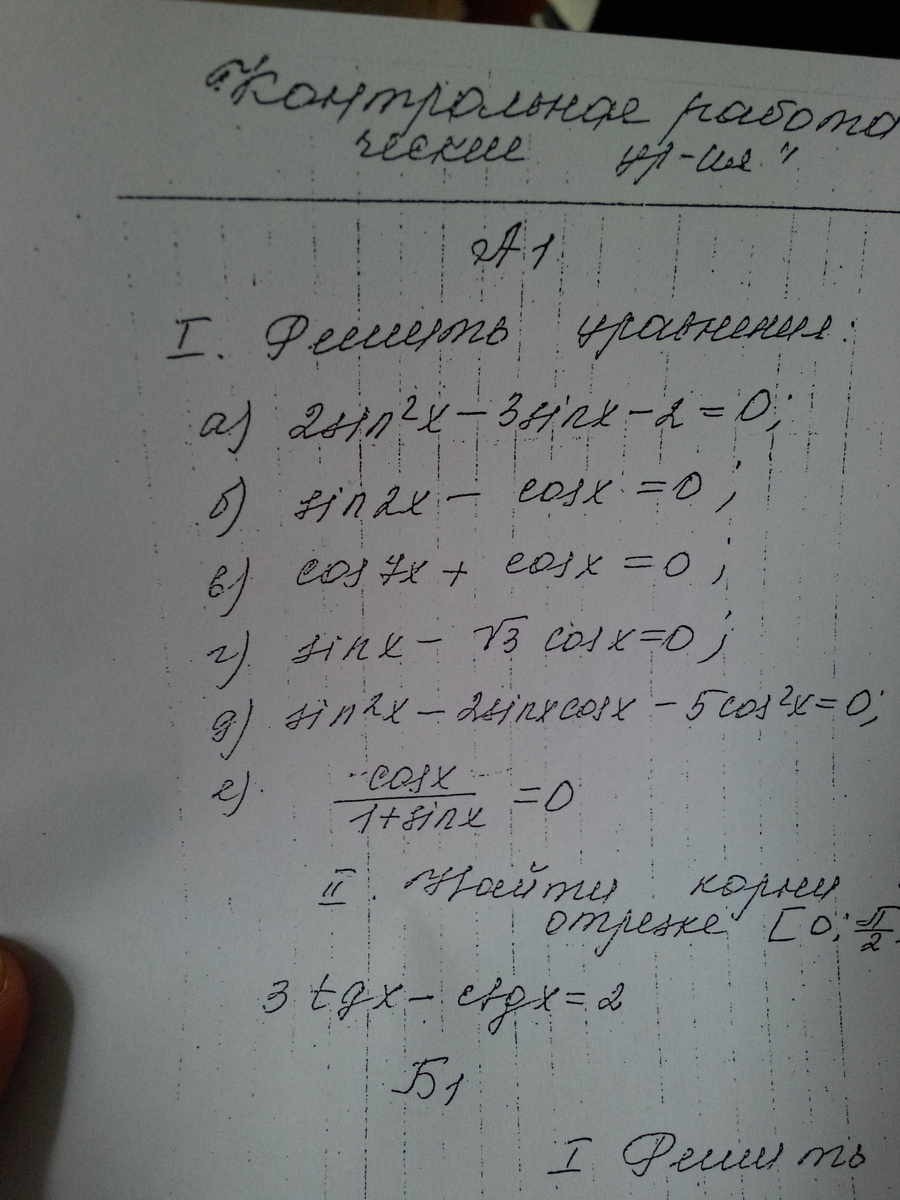 "Контрольная работа
ческие ур-ия"
А1
I. Решить уравнения:
а) 2sin²x - 3sinx - 2 = 0;
б) sin2x - cosx = 0;
в) cos7x + cosx = 0;
г) sinx - √3 cosx = 0;
д) sin²x - 2sinxcosx - 5cos²x = 0;
е) cosx/1+sinx = 0
II. Найти корни
отрезке [0; π/2]
3tgx - ctgx = 2
Б1
I Решить